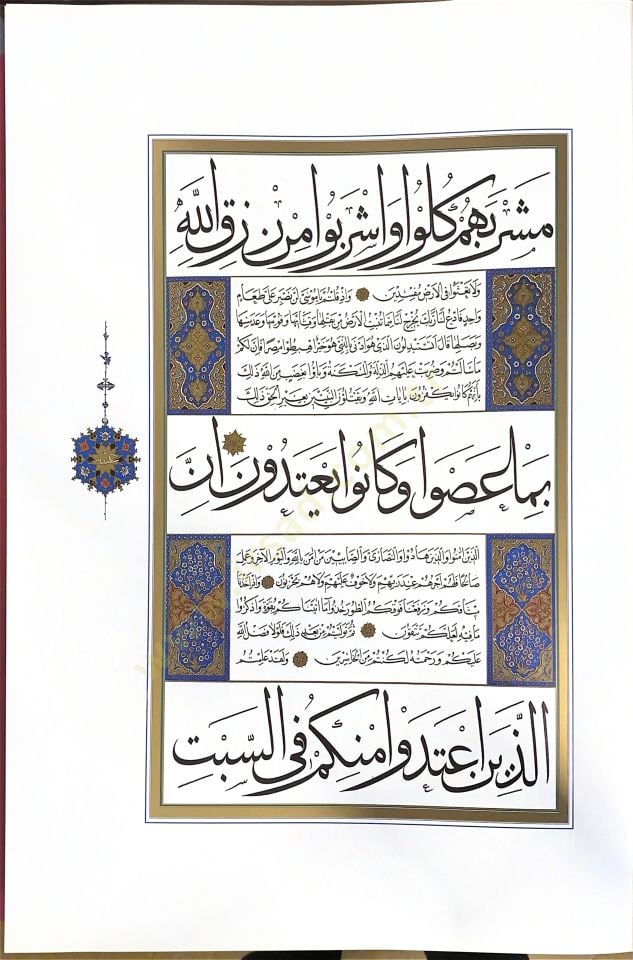 مَشْرَبَهُمْ كُلُوا وَاشْرَبُوا مِنْ رِزْقِ اللَّهِ
وَلَا تَعْثَوْا فِي الْأَرْضِ مُفْسِدِينَ وَإِذْ قُلْتُمْ يَا مُوسَىٰ لَنْ نَصْبِرَ عَلَىٰ طَعَامٍ
وَاحِدٍ فَادْعُ لَنَا رَبَّكَ يُخْرِجْ لَنَا مِمَّا تُنْبِتُ الْأَرْضُ مِنْ بَقْلِهَا وَقِثَّائِهَا وَفُومِهَا وَعَدَسِهَا
وَبَصَلِهَا قَالَ أَتَسْتَبْدِلُونَ الَّذِي هُوَ أَدْنَىٰ بِالَّذِي هُوَ خَيْرٌ اهْبِطُوا مِصْرًا فَإِنَّ لَكُمْ
مَا سَأَلْتُمْ وَضُرِبَتْ عَلَيْهِمُ الذِّلَّةُ وَالْمَسْكَنَةُ وَبَاءُوا بِغَضَبٍ مِنَ اللَّهِ ذَٰلِكَ
بِأَنَّهُمْ كَانُوا يَكْفُرُونَ بِآيَاتِ اللَّهِ وَيَقْتُلُونَ النَّبِيِّينَ بِغَيْرِ الْحَقِّ ذَٰلِكَ
بِمَا عَصَوْا وَكَانُوا يَعْتَدُونَ إِنَّ
الَّذِينَ آمَنُوا وَالَّذِينَ هَادُوا وَالنَّصَارَىٰ وَالصَّابِئِينَ مَنْ آمَنَ بِاللَّهِ وَالْيَوْمِ الْآخِرِ وَعَمِلَ
صَالِحًا فَلَهُمْ أَجْرُهُمْ عِنْدَ رَبِّهِمْ وَلَا خَوْفٌ عَلَيْهِمْ وَلَا هُمْ يَحْزَنُونَ وَإِذْ أَخَذْنَا
مِيثَاقَكُمْ وَرَفَعْنَا فَوْقَكُمُ الطُّورَ خُذُوا مَا آتَيْنَاكُمْ بِقُوَّةٍ وَاذْكُرُوا
مَا فِيهِ لَعَلَّكُمْ تَتَّقُونَ ثُمَّ تَوَلَّيْتُمْ مِنْ بَعْدِ ذَٰلِكَ فَلَوْلَا فَضْلُ اللَّهِ
عَلَيْكُمْ وَرَحْمَتُهُ لَكُنْتُمْ مِنَ الْخَاسِرِينَ وَلَقَدْ عَلِمْتُمُ
الَّذِينَ اعْتَدَوْا مِنْكُمْ فِي السَّبْتِ